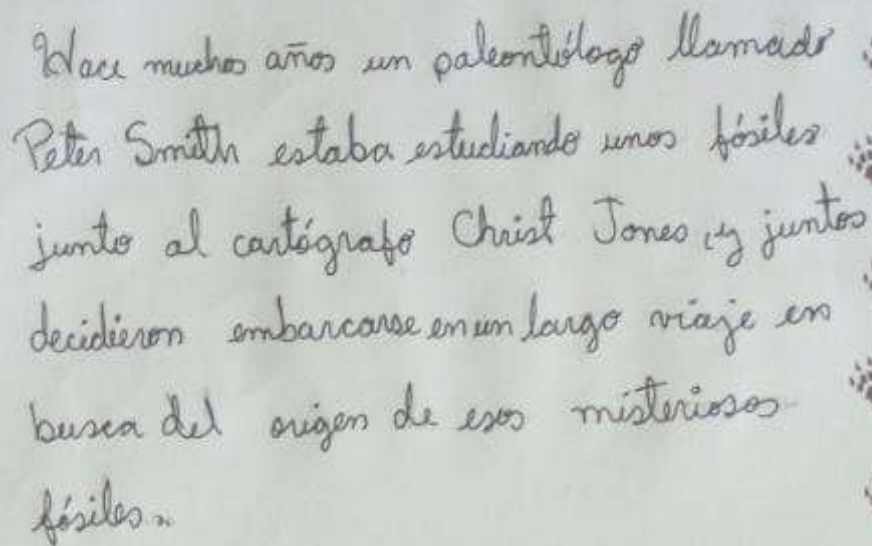 Hace muchos años un paleontólogo llamado
Peter Smith estaba estudiando unos fósiles
junto al cartógrafo Christ Jones, y juntos
decidieron embarcarse en un largo viaje en
busca del origen de esos misteriosos
fósiles.